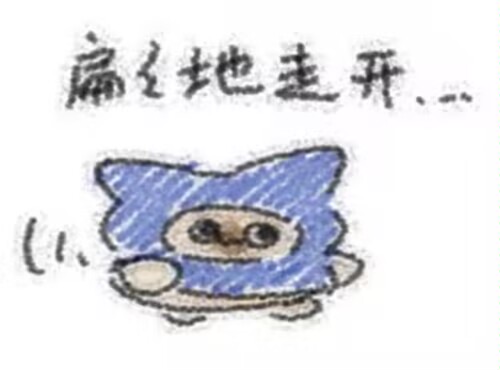 扁彳地走开...